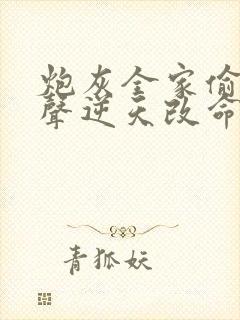 炮灰全家偷
聲逆天改命
青狐妖